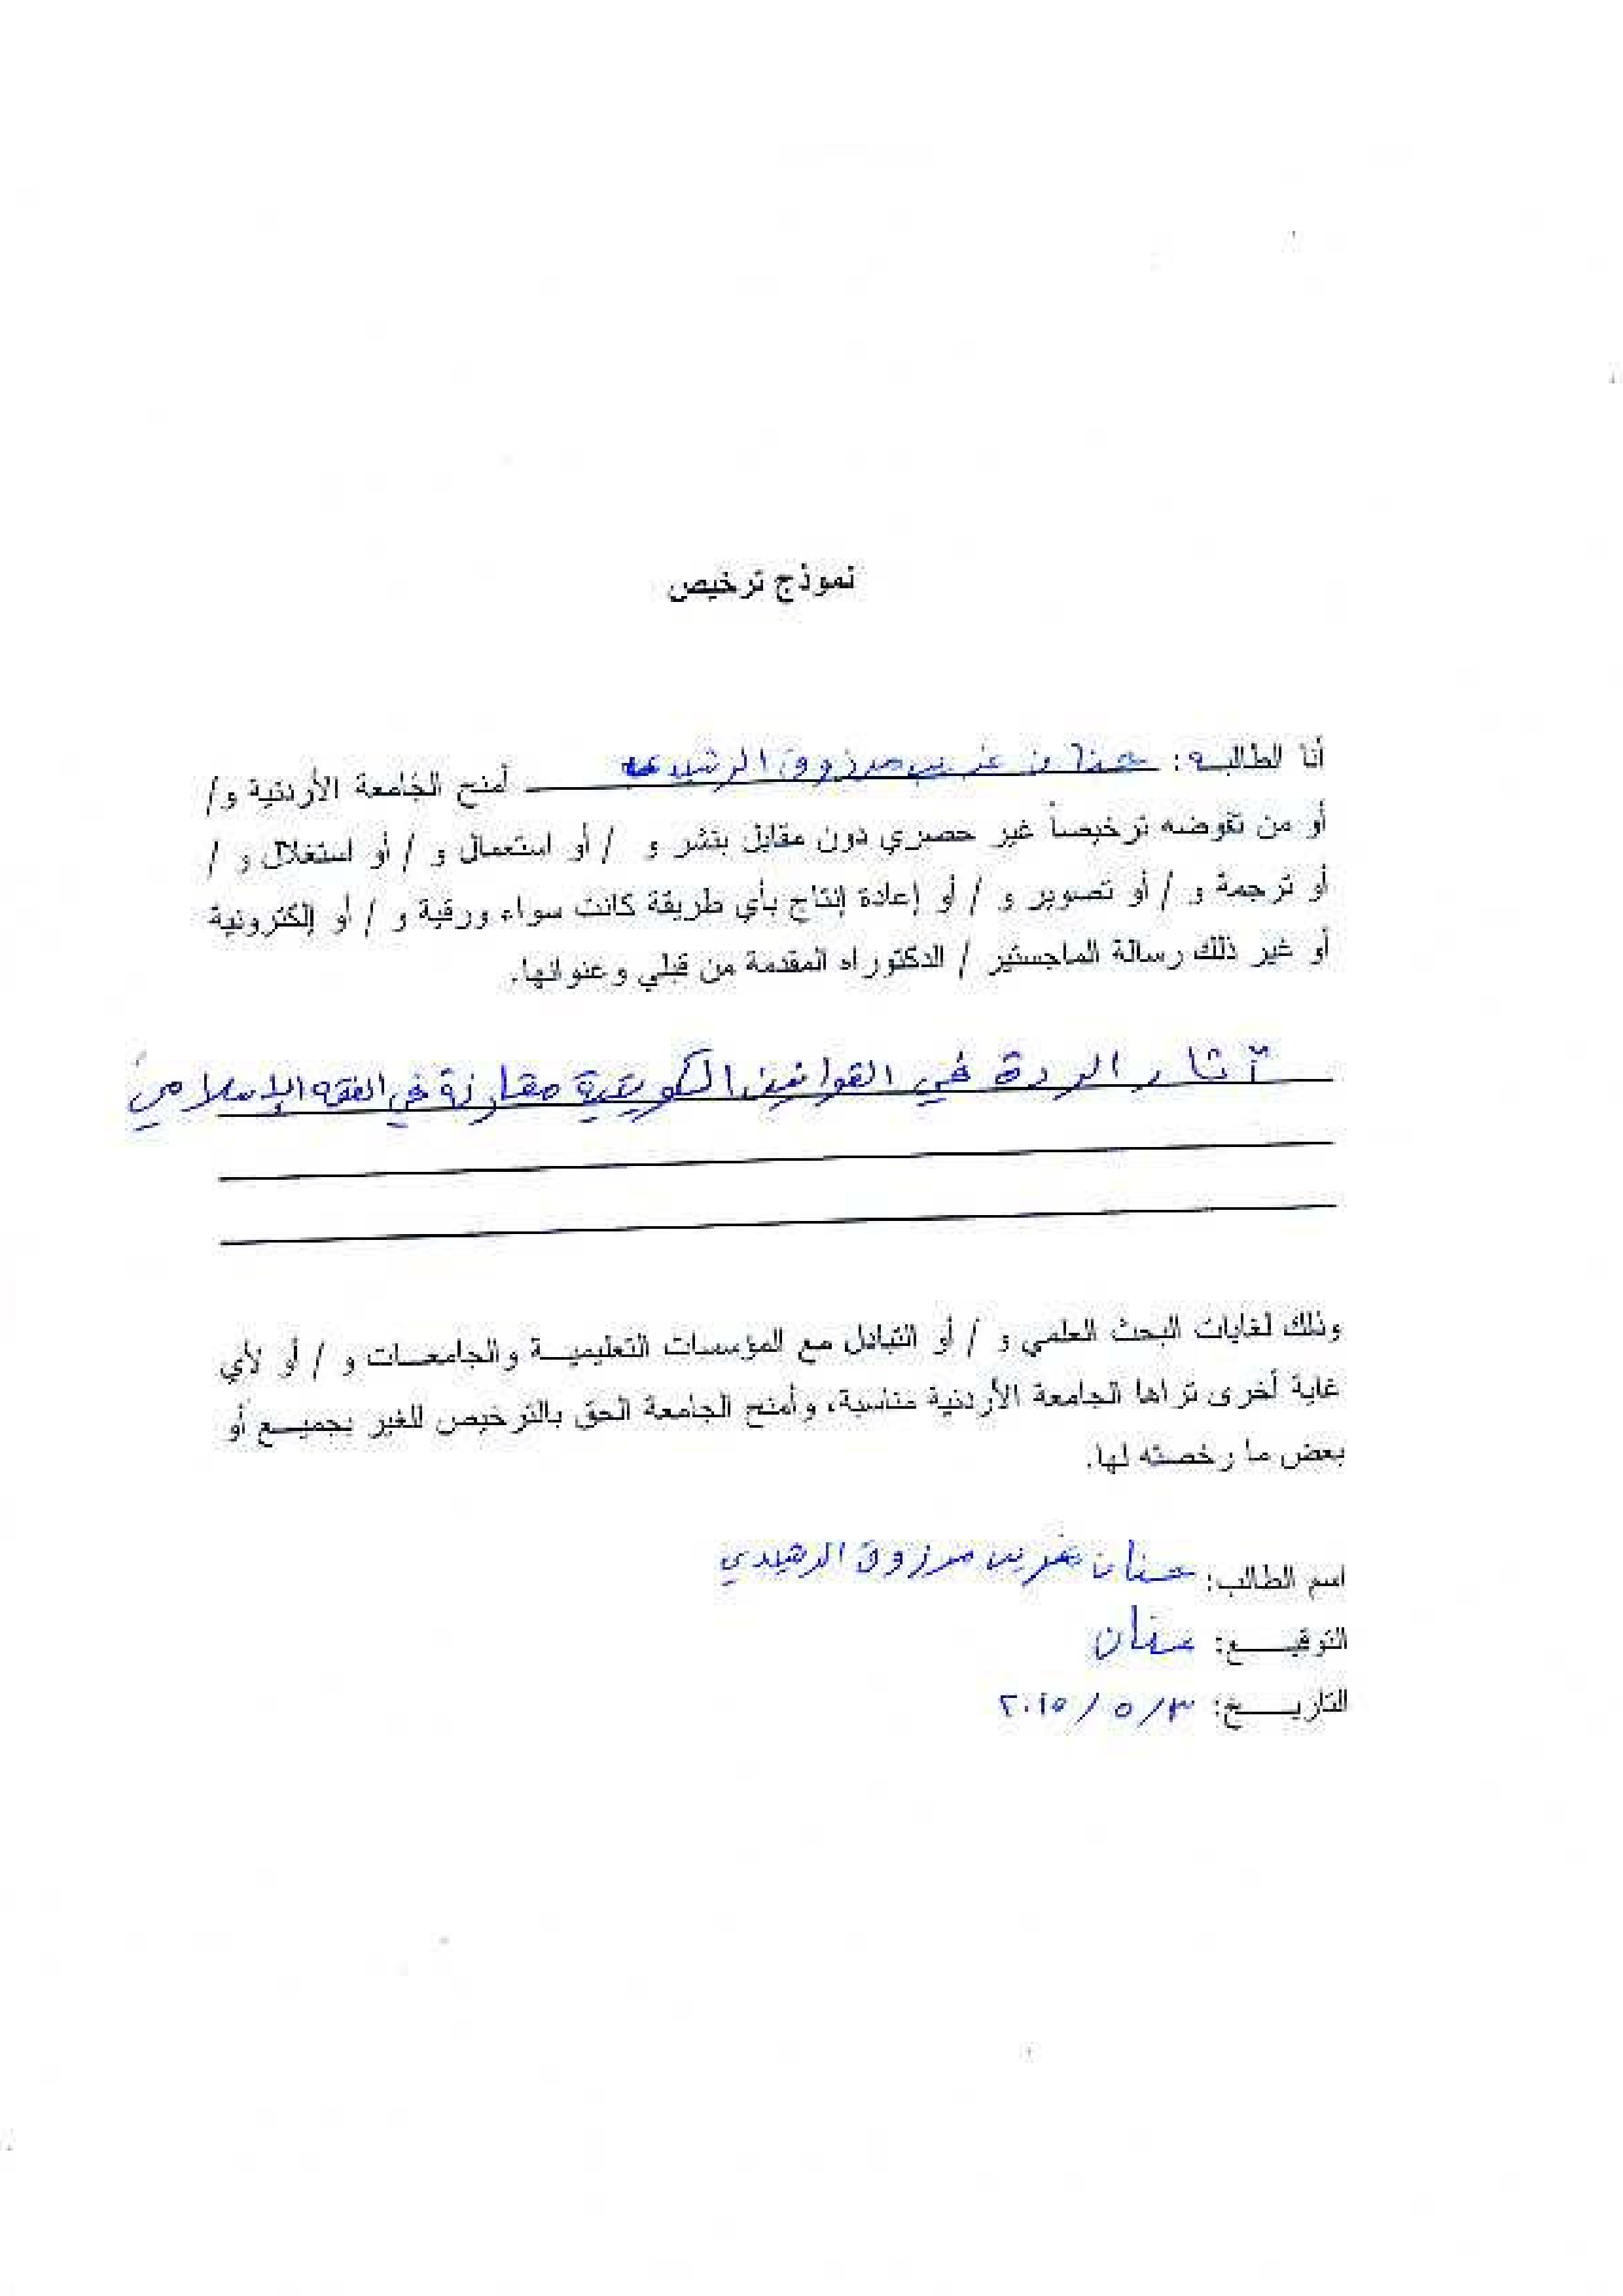 نموذج ترخيص
أنا الطالبه: حنان غريب مرزوق الرشيدي أمنح الجامعة الأردنية و/
أو من تفوضه ترخيصاً غير حصري دون مقابل بنشر و / أو استعمال و / أو استغلال و /
أو ترجمة و / أو تصوير و / أو إعادة إنتاج بأي طريقة كانت سواء ورقية و / أو إلكترونية
أو غير ذلك رسالة الماجستير / الدكتوراه المقدمة من قبلي وعنوانها.
آثار الردة في القوانين الكويتية مقارنة في الفقه الإسلامي
وذلك لغايات البحث العلمي و / أو التبادل مع المؤسسات التعليمية والجامعات و / أو لأي
غاية أخرى تراها الجامعة الأردنية مناسبة، وأمنح الجامعة الحق بالترخيص للغير بجميع أو
بعض ما رخصته لها.
اسم الطالب: حنان غريب مرزوق الرشيدي
التوقيع: حنان
التاريخ: ٣/ ٥ / ٢٠١٥